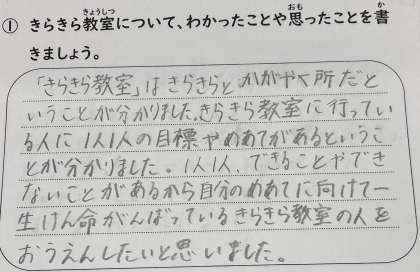 ① きらきら教室について、わかったことや思ったことを書
きましょう。
「きらきら教室」はきらきらとかがやく所だと
いうことが分かりました。きらきら教室に行ってい
る人に1人1人の目標やめあてがあるというこ
とが分かりました。1人1人、できることやでき
ないことがあるから自分のめあてに向けて一
生けん命がんばっているきらきら教室の人を
おうえんしたいと思いました。